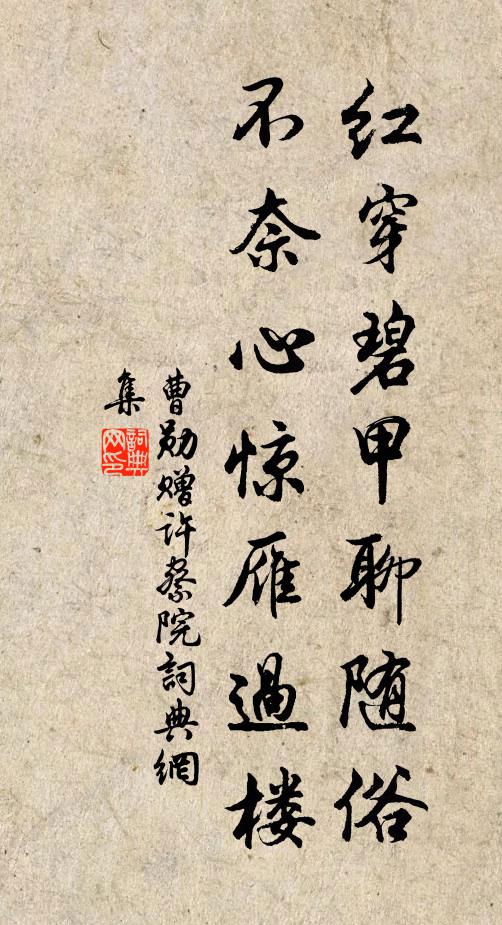 红穿碧甲聊随俗
不奈心惊雁過楼
曹勋赠许察院詞典網
集
詞典
网印